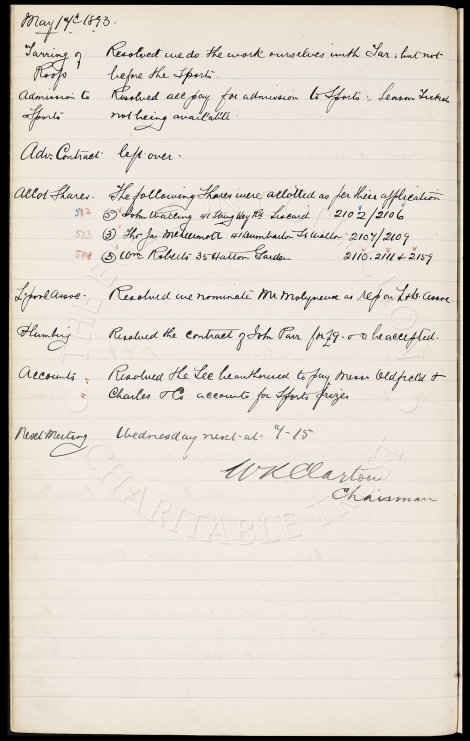 May 17th 1893.
Tarring of Resolved we do the work ourselves with Tar, but not
Roofs before the Sports.
Admission to Resolved all pay for admission to Sports: Season Tickets
Sports not being available.
Adv: Contract left over.
Allot Shares. The following Shares were allotted as per their application
512 (5) John Watling 41 Stringhey Rd Liscard 2102/2106
513 (3) Thos Jas McDermott 41 Dumbarton St Walton 2107/2109
514 (3) Wm Roberts 35 Hatton Garden 2110, 2111 & 2159
L'pool Assoc: Resolved we nominate Mr Molyneux as rep on Assoc
Plumbing Resolved the contract of John Parr for £9-0-0 be accepted.
Accounts Resolved the Sec be authorised to pay Messrs Oldfield &
Charles & Co accounts for Sports prizes
Next Meeting Wednesday next at 7-15
W Clayton
Chairman
THE
CHARITABLE TRUST